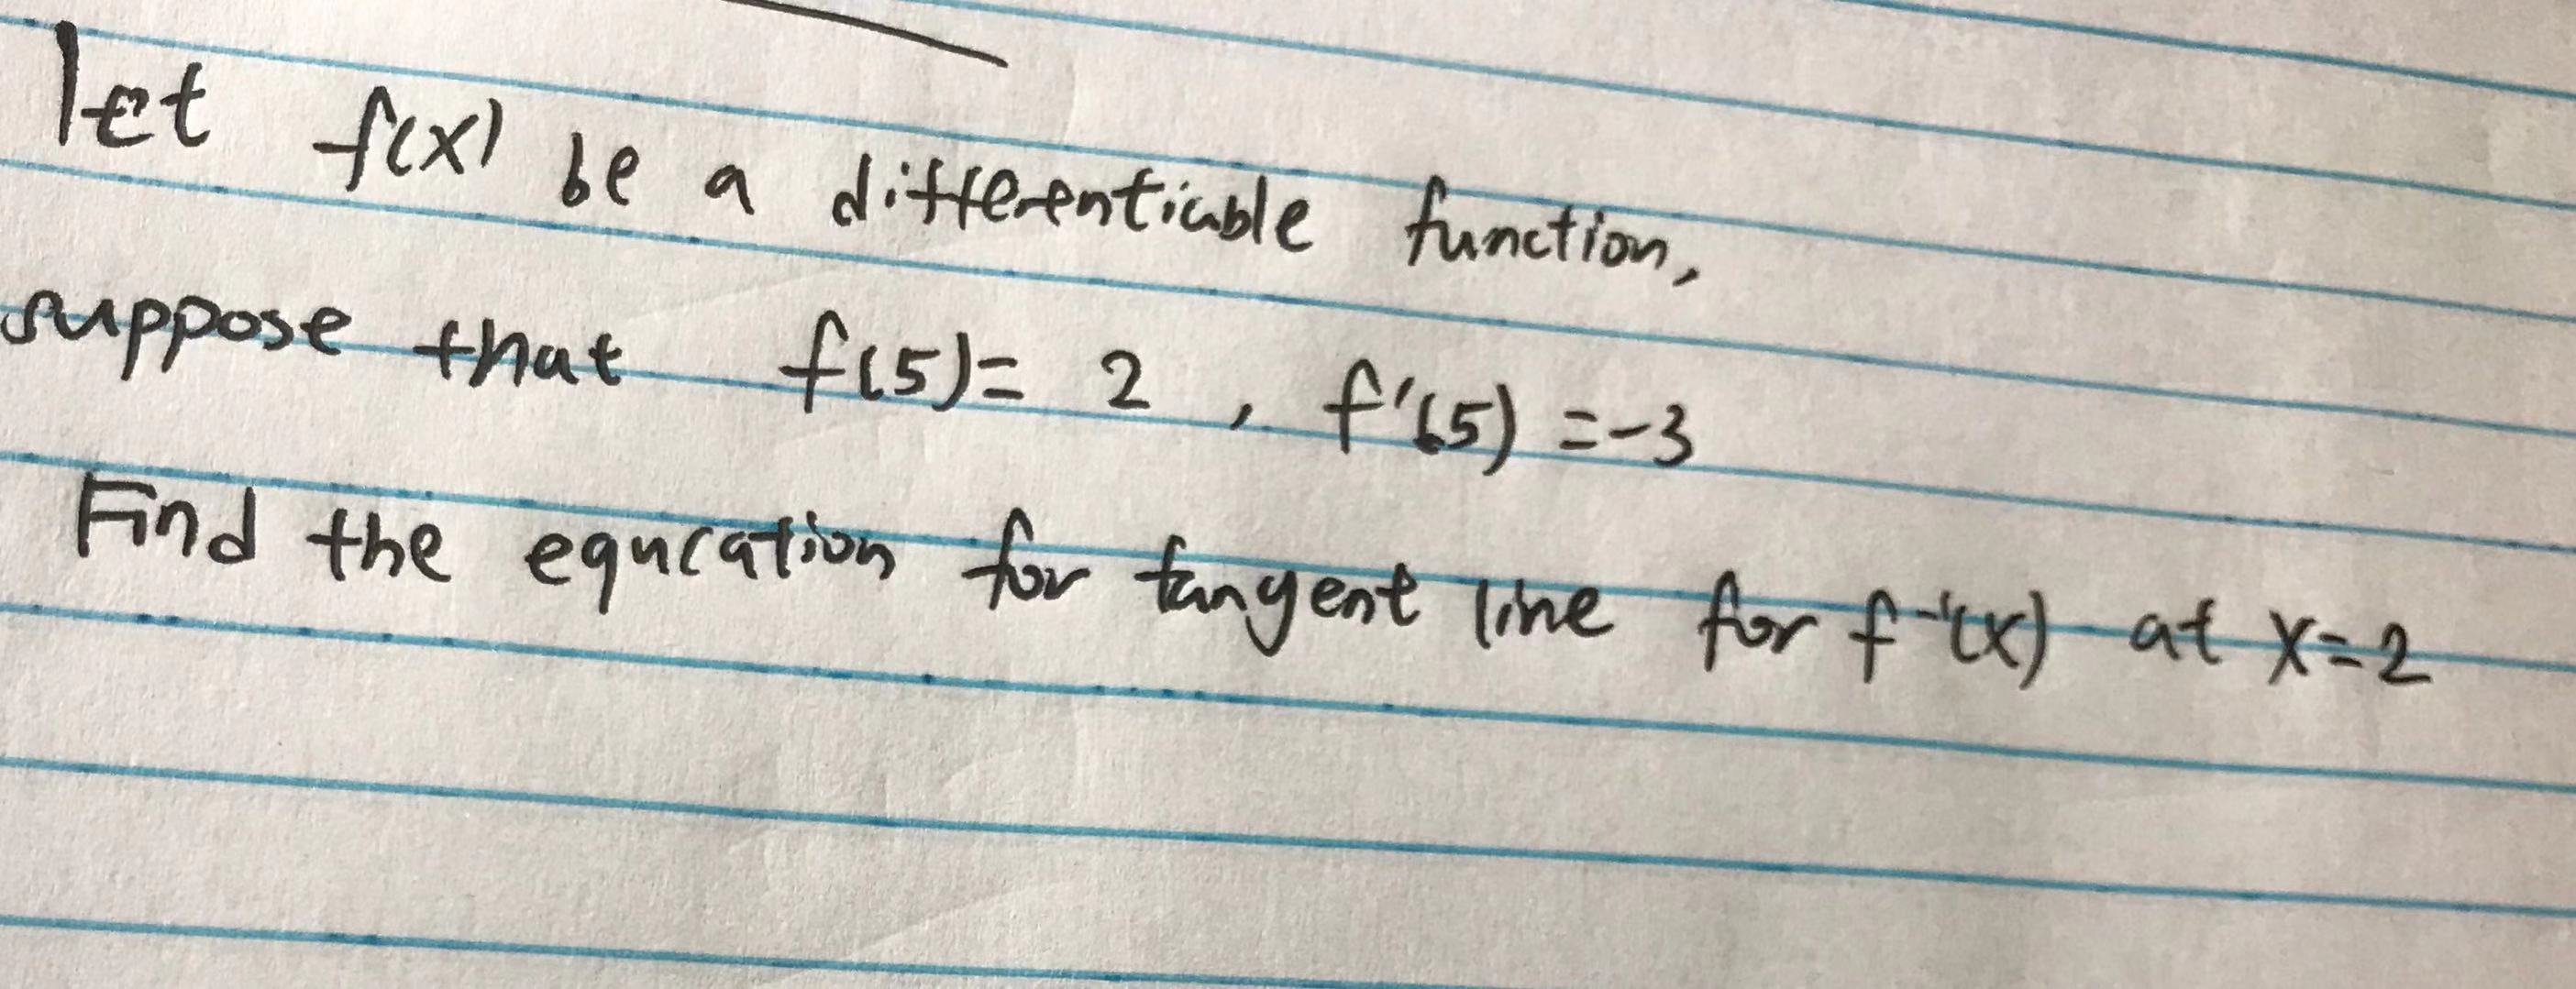 let f(x) be a differentiable function,
suppose that f(5)= 2 , f'(5) =-3
Find the equcation for tangent line for f⁻¹(x) at x=2